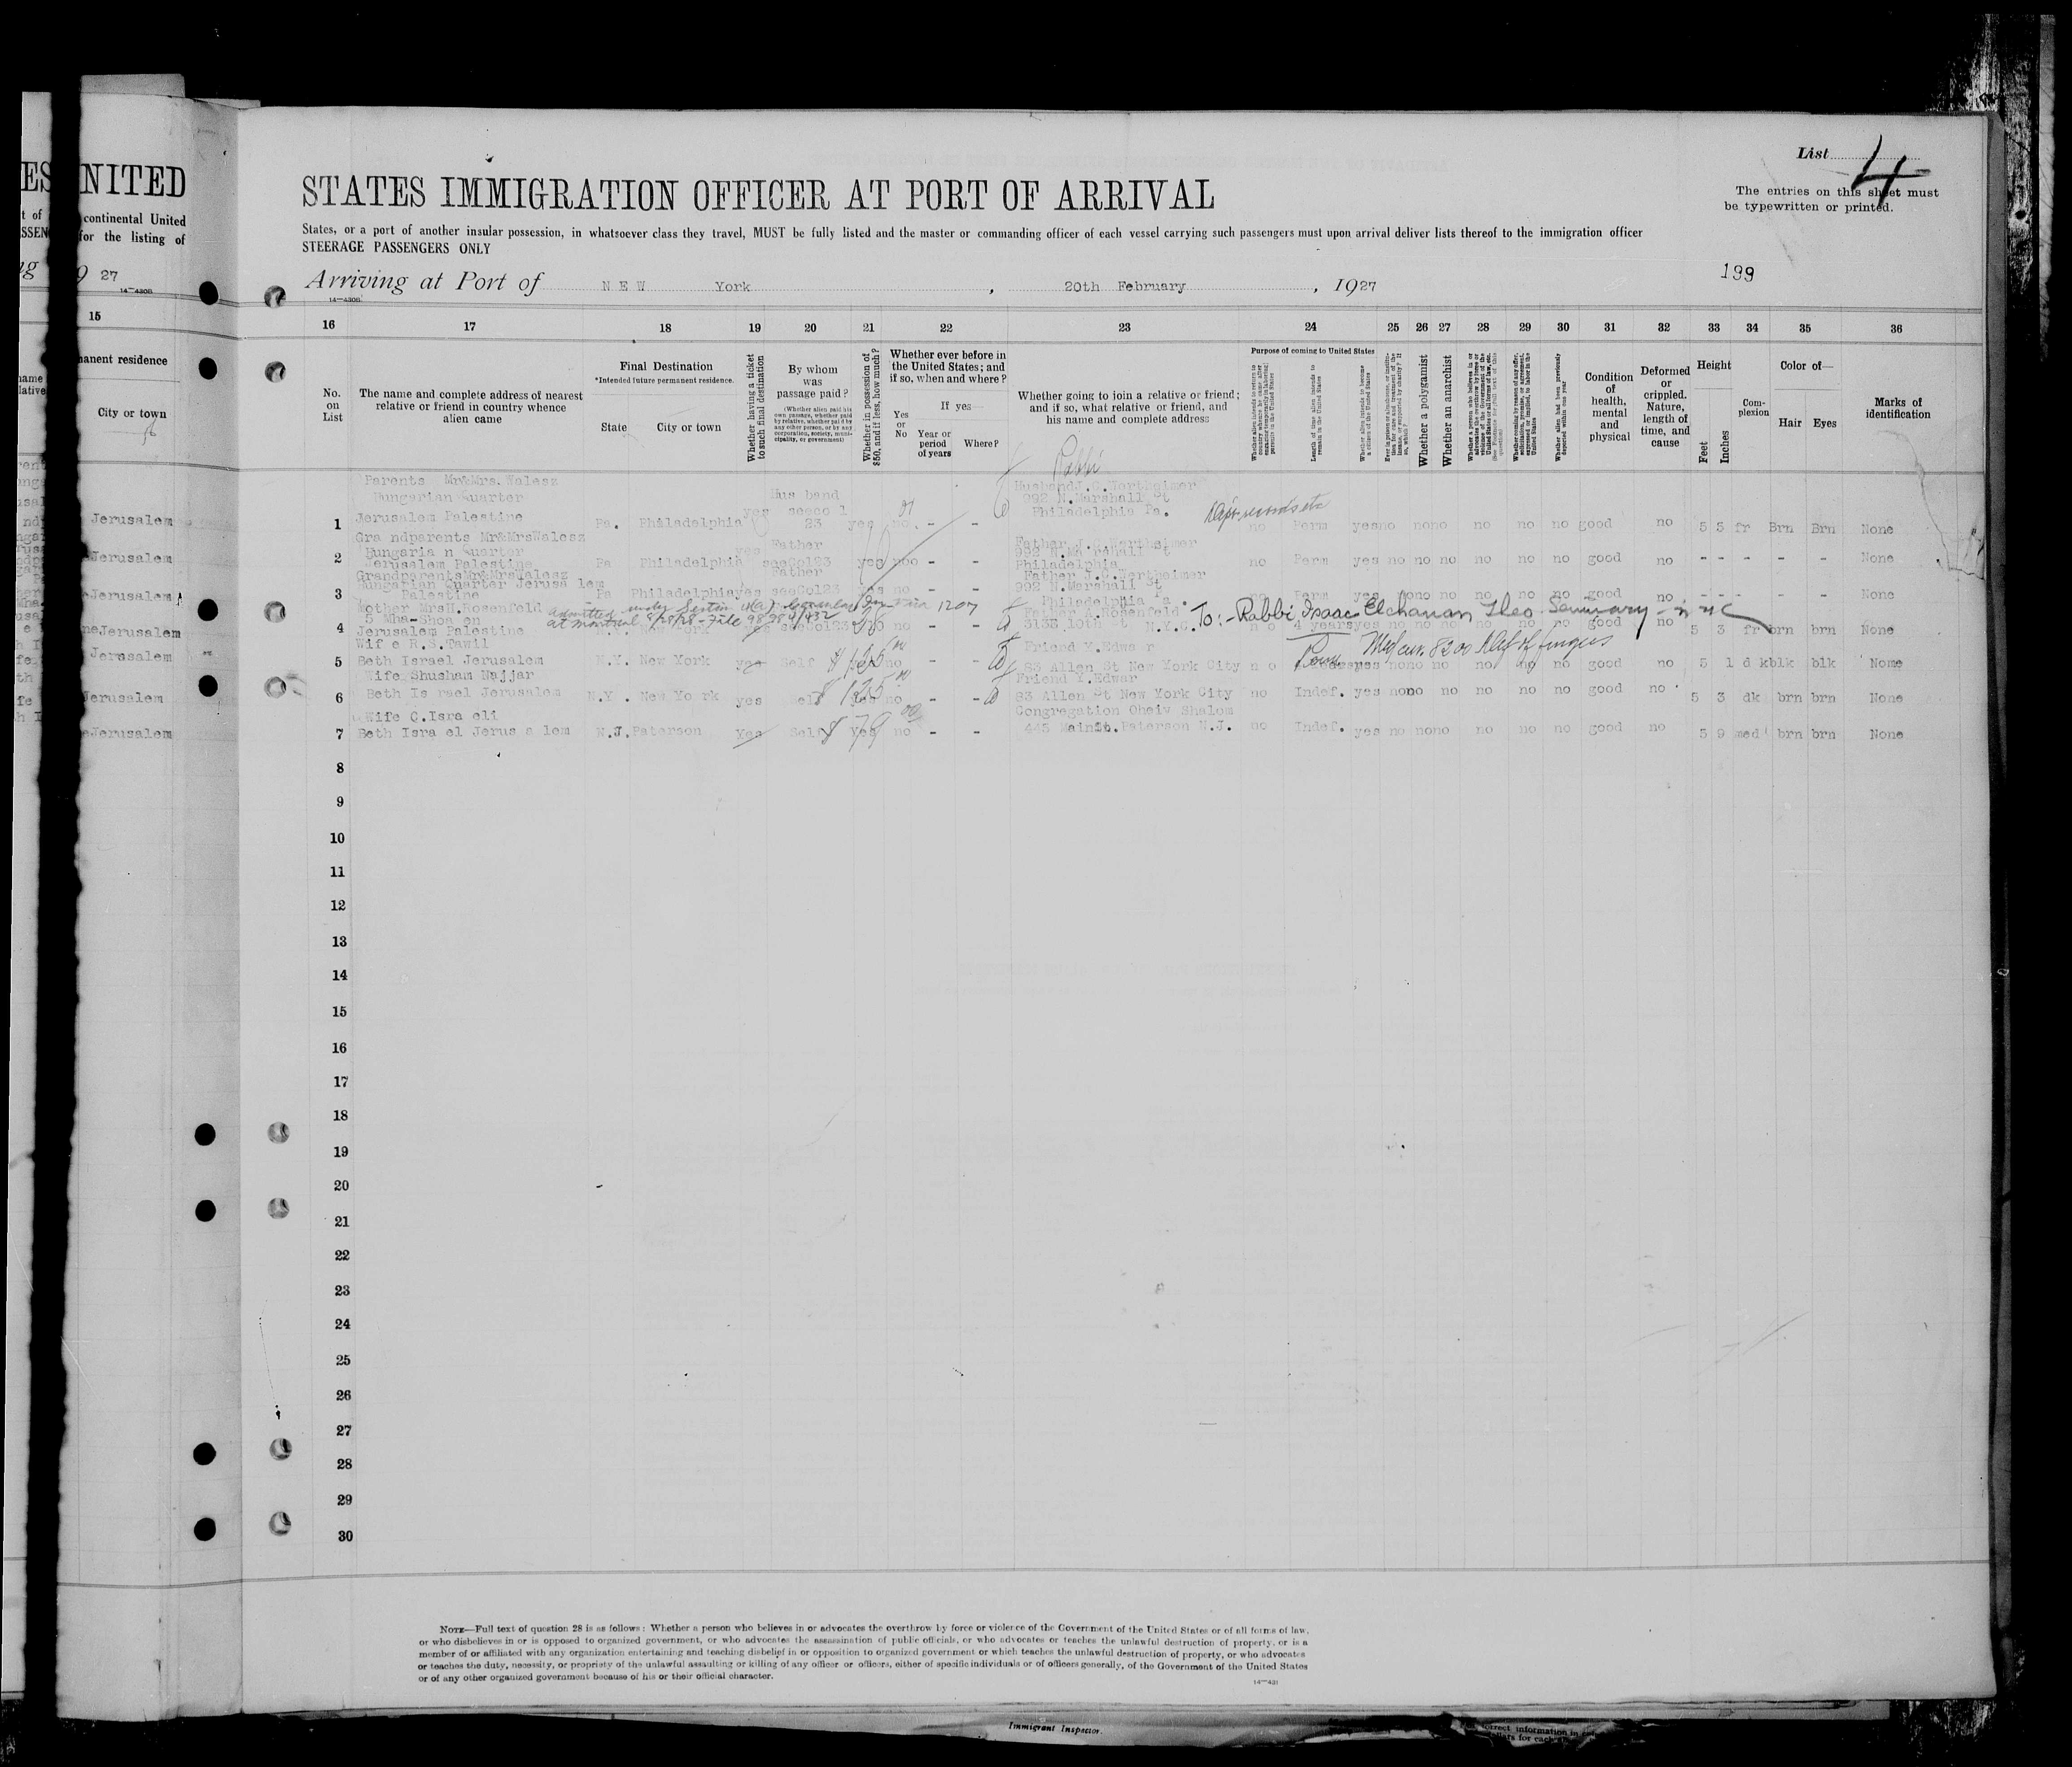 List 4
The entries on this sheet must
be typewritten or printed.
ES
NITED
STATES IMMIGRATION OFFICER AT PORT OF ARRIVAL
continental United
for the listing of
States, or a port of another insular possession, in whatsoever class they travel, MUST be fully listed and the master or commanding officer of each vessel carrying such passengers must upon arrival deliver lists thereof to the immigration officer
STEERAGE PASSENGERS ONLY
27
14—4308
Arriving at Port of NEW York, 20th February, 1927
199
14—4308
15
16 17 18 19 20 21 22 23 24 25 26 27 28 29 30 31 32 33 34 35 36
manent residence
City or town
No. on List
The name and complete address of nearest relative or friend in country whence alien came
Final Destination
*Intended future permanent residence.
State
City or town
Whether having a ticket to such final destination
By whom was passage paid?
(Whether alien paid his own passage, whether paid by relative, whether paid by any other person, or by any corporation, society, municipality, or government)
Whether in possession of $50, and if less, how much?
Whether ever before in the United States; and if so, when and where?
Yes or No
If yes—
Year or period of years
Where?
Whether going to join a relative or friend; and if so, what relative or friend, and his name and complete address
Purpose of coming to United States
Length of time alien intends to remain in the United States
Whether alien intends to become a citizen of the United States
Whether a polygamist
Whether an anarchist
Whether alien had been previously deported within one year
Condition of health, mental and physical
Deformed or crippled. Nature, length of time, and cause
Height
Feet
Inches
Complexion
Color of—
Hair
Eyes
Marks of identification
Rabbi
Parents Mr&Mrs. Walesz
Hungarian Quarter
Hus band
Husband J.G.Wertheimer
992 N.Marshall St
Jerusalem
1 Jerusalem Palestine Pa. Philadelphia yes 23 yes no - - Philadelphia Pa. no Perm yes no no no no no no good no 5 5 fr Brn Brn None
Gra ndparents Mr&MrsWalesz
Hungaria n Quarter
Father
Father J.G.Wertheimer
992 N.Ma rshall St
Jerusalem
2 Jerusalem Palestine Pa Philadelphia yes seeCol23 yes no - - Philadelphia no Perm yes no no no no no no good no - - - - - None
GrandparentsMr&MrsWalesz
Hungarian Quarter Jerusa lem
Father
Father J.G.Wertheimer
992 N.Marshall St
Jerusalem
3 Palestine Pa Philadelphia yes seeCol23 yes no - - Philadelphia Pa. no Perm yes no no no no no no good no - - - - - None
Mother MrsH.Rosenfeld
admitted under Section 4(a)
at Montreal 5/28/28 - File 98984/432
Father A.Rosenfeld
To:- Rabbi Isaac Elchanan Theo. Seminary - N Y C
Jerusalem
4 Jerusalem Palestine seeCol23 no - - N.Y.C. no 4 years yes no no no no no no good no 5 3 fr brn brn None
Wif e R.S.Tawil
Friend Y.Edwa r
Jerusalem
5 Beth Israel Jerusalem N.Y. New York yes Self $125 00 no - - 83 Allen St New York City n o Perm yes no no no no no no good no 5 1 d k blk blk None
Wife Shusham Najjar
Friend Y.Edwar
Jerusalem
6 Beth Is rael Jerusalem N.Y . New Yo rk yes Self $125 00 yes no - - 83 Allen St New York City no Indef. yes no no no no no no good no 5 3 dk brn brn None
Wife C.Isra eli
Congregation Oheiv Shalom
Jerusalem
7 Beth Isra el Jerus a lem N.J. Paterson Yes Self $79 00 Yes no - - 445 Main St. Paterson N.J. no Indef. yes no no no no no no good no 5 9 med brn brn None
8
9
10
11
12
13
14
15
16
17
18
19
20
21
22
23
24
25
26
27
28
29
30
NOTE—Full text of question 28 is as follows: Whether a person who believes in or advocates the overthrow by force or violence of the Government of the United States or of all forms of law,
or who disbelieves in or is opposed to organized government, or who advocates the assassination of public officials, or who advocates or teaches the unlawful destruction of property, or is a
member of or affiliated with any organization entertaining and teaching disbelief in or opposition to organized government or which teaches the unlawful destruction of property, or who advocates
or teaches the duty, necessity, or propriety of the unlawful assaulting or killing of any officer or officers, either of specific individuals or of officers generally, of the Government of the United States
or of any other organized government because of his or their official character.
14—431
Immigrant Inspector.